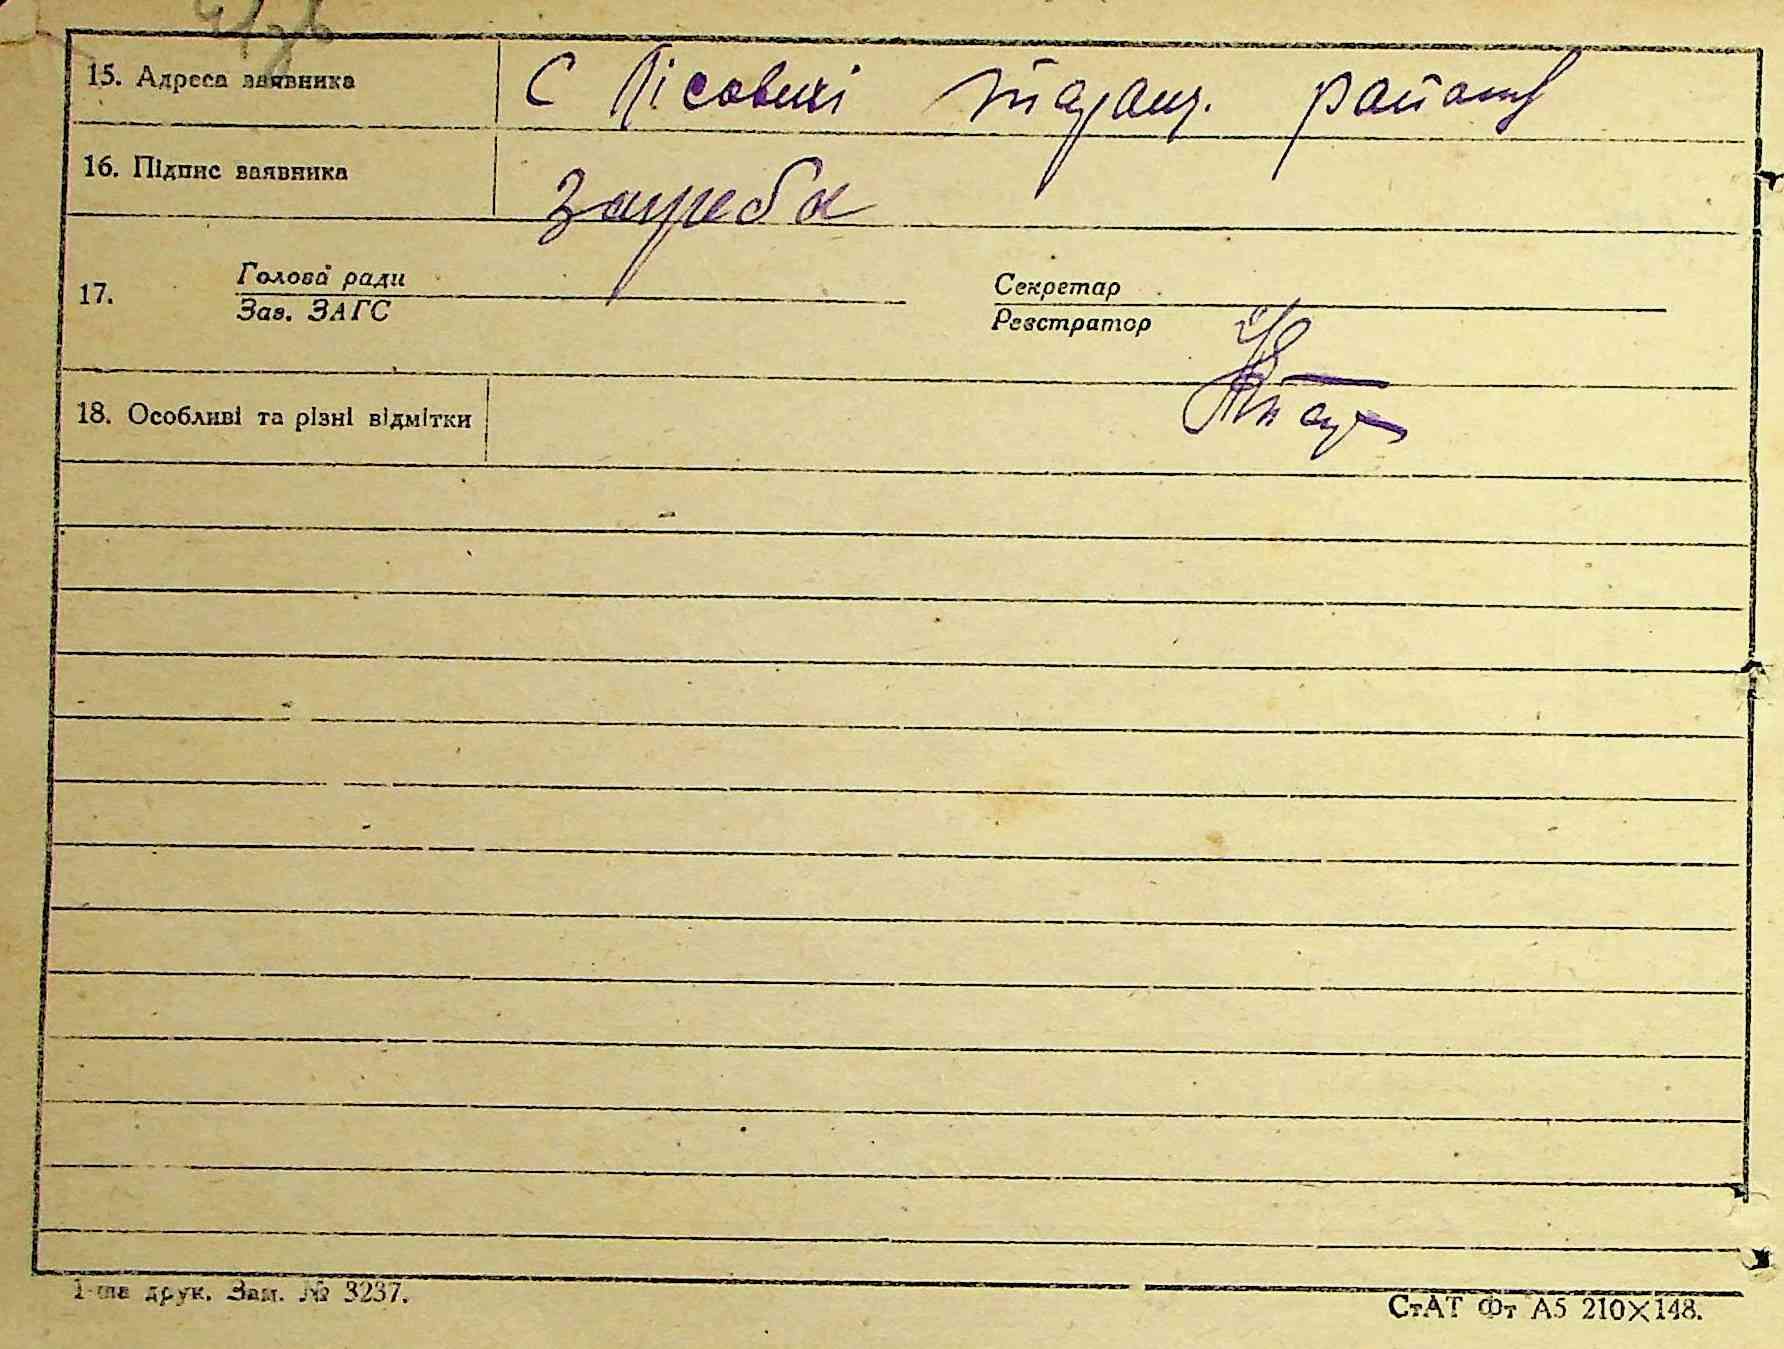 15. Адреса заявника С Лісовичі таращ. району
16. Підпис заявника Загреба
17. Голова ради Секретар
Зав. ЗАГС Реєстратор
18. Особливі та різні відмітки
1-ша друк. Зам. № 3237.
СтАТ Фт А5 210×148.